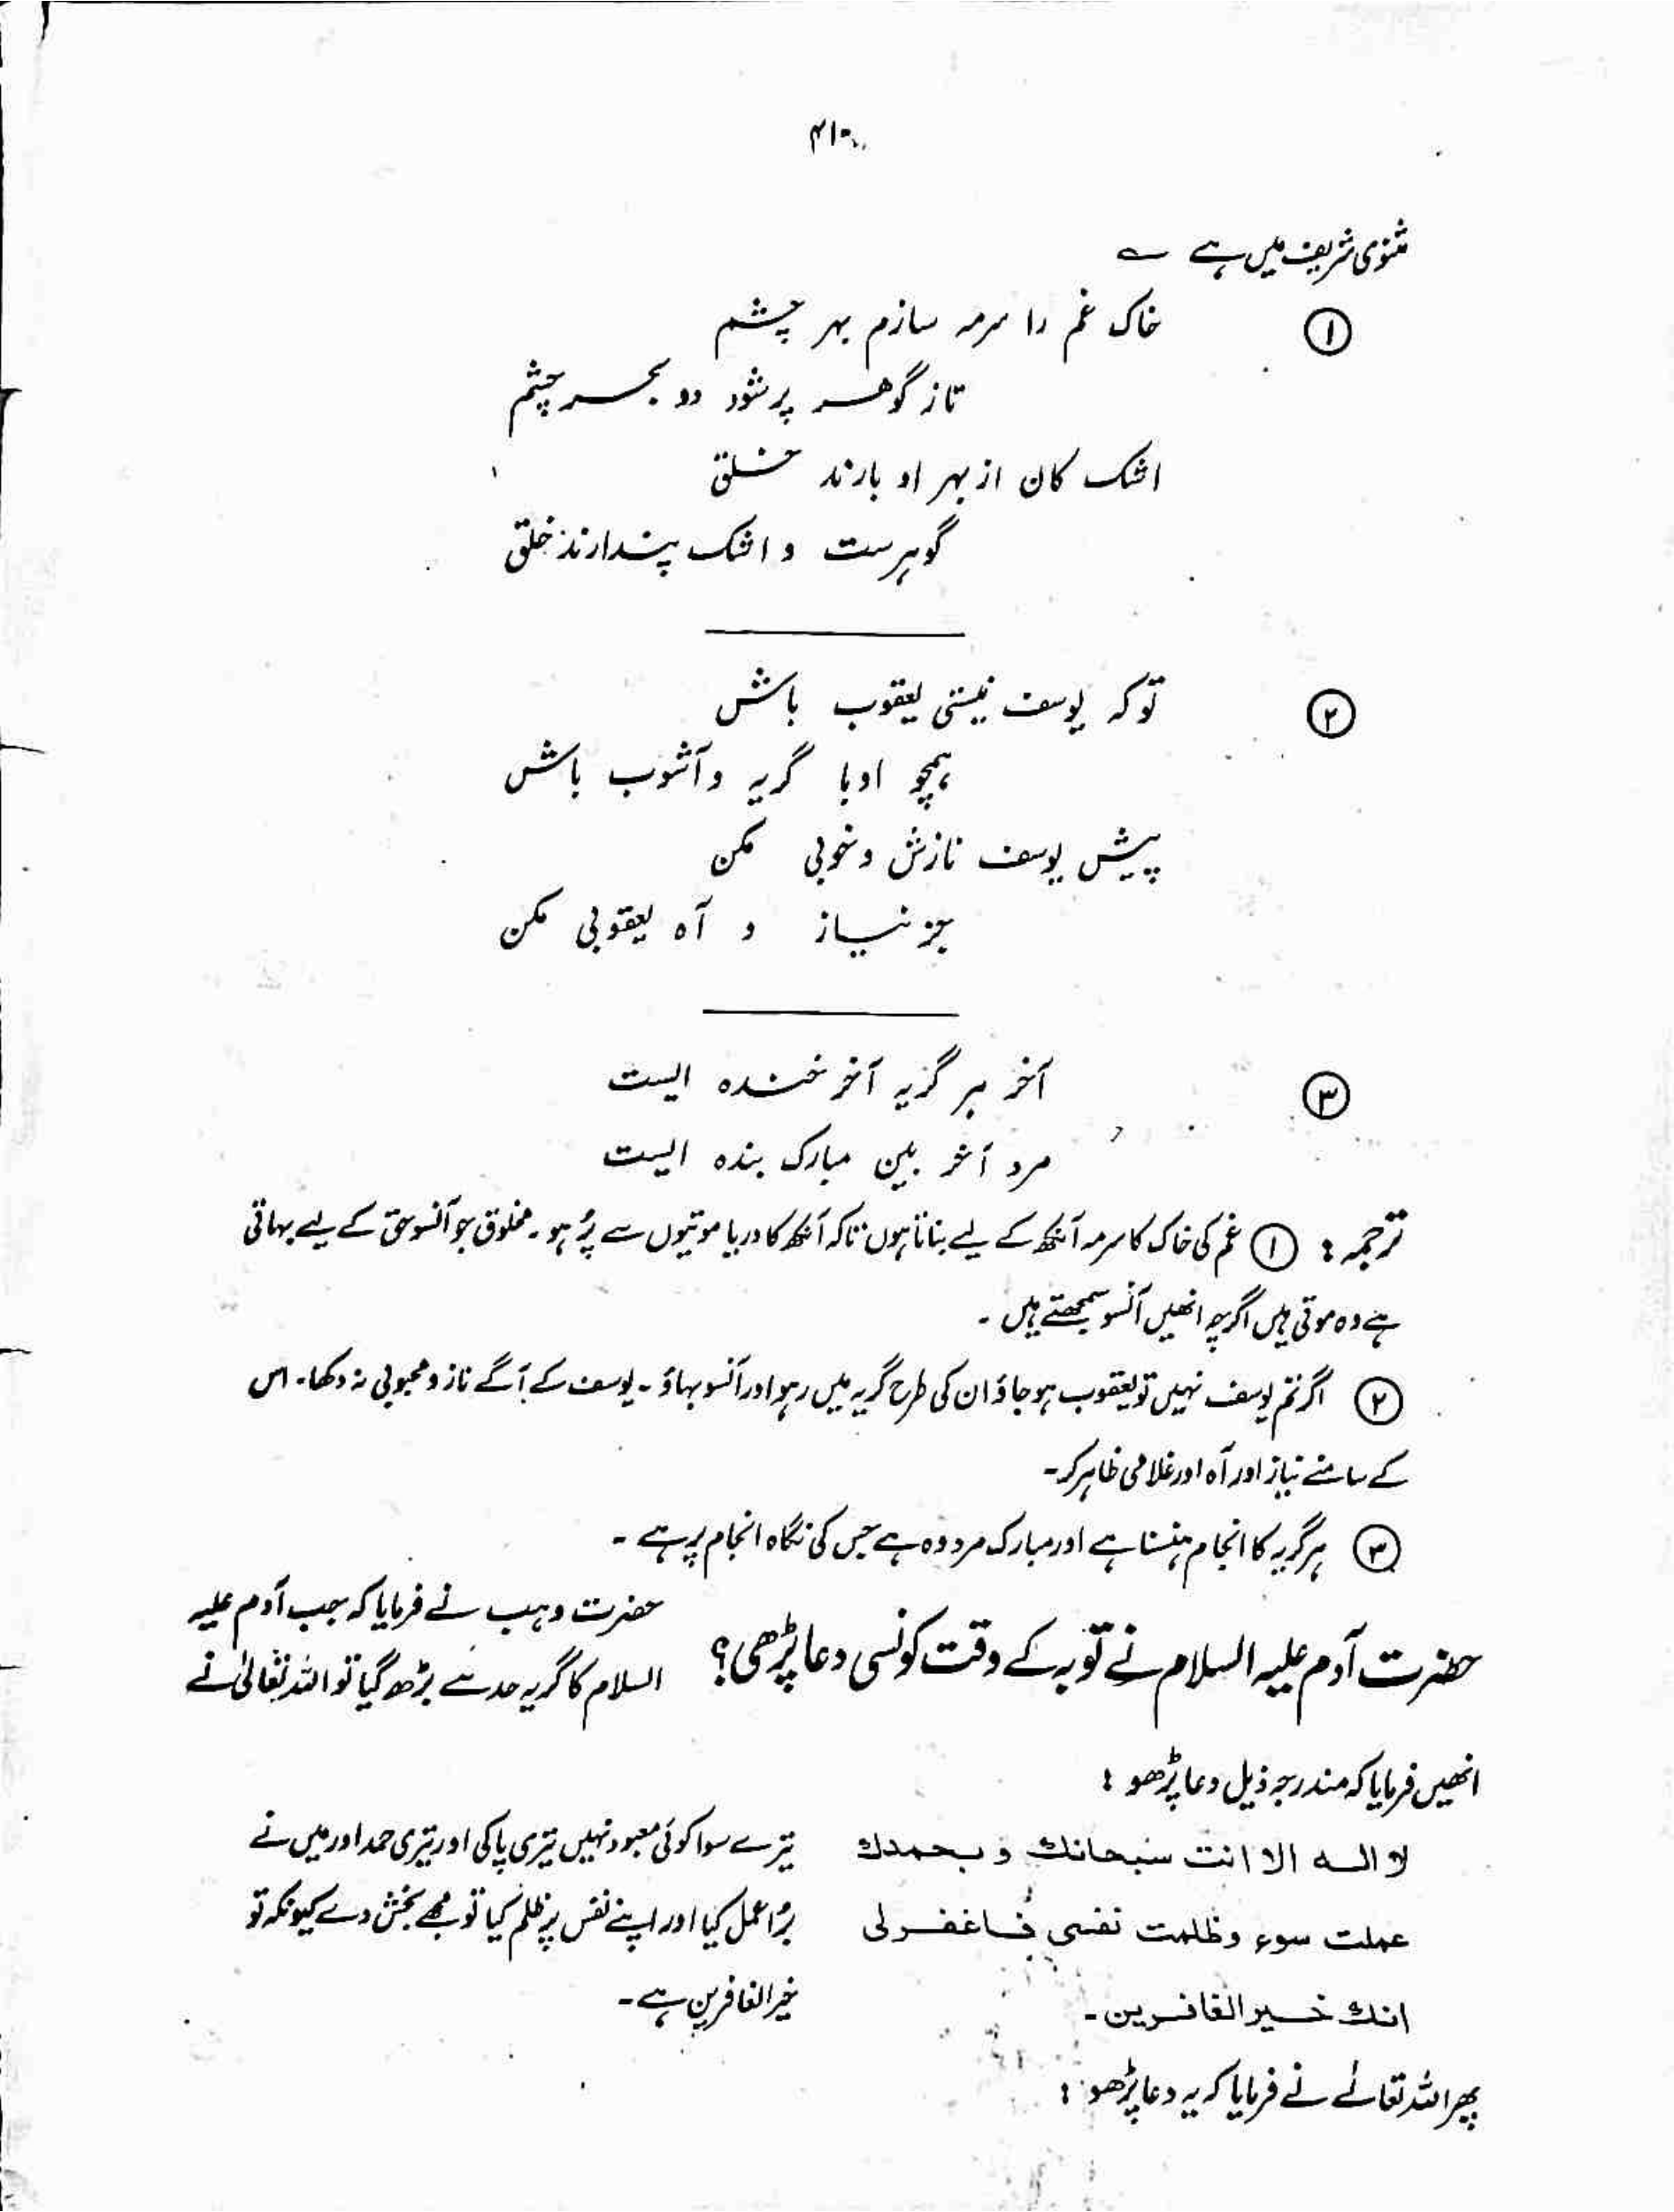 ۴۱۰
مثنوی شریف میں ہے ؎
① خاک غم را سرمہ سازم بہر چشم
تاز گوھر پر شود دو بحر چشم
اشک کان از بہر او بارند خلق
گوہرست و اشک پندارند خلق
② تو کہ یوسف نیستی یعقوب باش
ہمچو او با گریہ و آشوب باش
پیش یوسف نازش و خوبی مکن
جز نیاز و آہ یعقوبی مکن
③ آخر ہر گریہ آخر خندہ ایست
مرد آخر بین مبارک بندہ ایست
ترجمہ : ① غم کی خاک کا سرمہ آنکھ کے لیے بناتا ہوں تاکہ آنکھ کا دریا موتیوں سے پُر ہو۔ مخلوق جو آنسو حق کے لیے بہاتی
ہے وہ موتی ہیں اگرچہ انھیں آنسو سمجھتے ہیں ۔
② اگر تم یوسف نہیں تو یعقوب ہو جاؤ ان کی طرح گریہ میں رہو اور آنسو بہاؤ ۔ یوسف کے آگے ناز و محبوبی نہ دکھا۔ اس
کے سامنے نیاز اور آہ اور غلامی ظاہر کر۔
③ ہر گریہ کا انجام ہنسنا ہے اور مبارک مرد وہ ہے جس کی نگاہ انجام پر ہے ۔
حضرت آدم علیہ السلام نے توبہ کے وقت کونسی دعا پڑھی؟
حضرت وہب نے فرمایا کہ جب آدم علیہ
السلام کا گریہ حد سے بڑھ گیا تو اللہ تعالیٰ نے
انھیں فرمایا کہ مندرجہ ذیل دعا پڑھو :
لا الٰہ الا انت سبحانك و بحمدك
عملت سوء وظلمت نفسی فاغفرلی
انك خیر الغافرین ۔
تیرے سوا کوئی معبود نہیں تیری پاکی اور تیری حمد اور میں نے
بُرا عمل کیا اور اپنے نفس پر ظلم کیا تو مجھے بخش دے کیونکہ تو
خیر الغافرین ہے ۔
پھر اللہ تعالےٰ نے فرمایا کہ یہ دعا پڑھو :